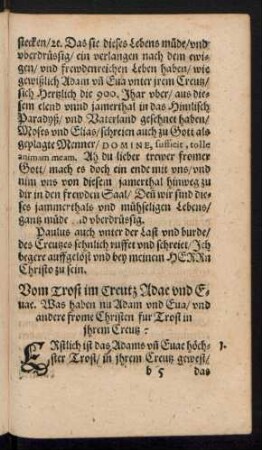 stecken/ ꝛc. Das sie dieses Lebens müde/ vnd
vberdrüssig/ ein verlangen nach dem ewi-
gen/ vnd frewdenreichen Leben haben/ wie
gewißlich Adam vñ Eua vnter jrem Creutz/
sich Hertzlich die 900. Jhar vber/ aus die-
sem elend vnnd jamerthal in das Himlisch
Paradyß/ vnd Vaterland gesehnet haben/
Moses vnd Elias/ schreien auch zu Gott als
geplagte Menner/ DOMINE, sufficit, tolle
animam meam. Ah du lieber trewer fromer
Gott/ mach es doch ein ende mit vns/ vnd
nim vns von diesem jamerthal hinweg zu
dir in den frewden Saal/ Deñ wir sind die-
ses jammerthals vnd mühseligen Lebens/
gantz müde vnd vberdrüssig.
Paulus auch vnter der Last vnd burde/
des Creutzes sehnlich rufft vnd schreiet/ Jch
begere auffgelöst vnd bey meinem HERRn
Christo zu sein.
Vom Trost im Creutz Adae vnd E-
uae. Was haben nu Adam vnd Eua/ vnd
andere frome Christen fur Trost in
jhrem Creutz?
ERstlich ist das Adams vñ Euae höch- 1.
ster Trost/ in jhrem Creutz gewest/
b 5 das